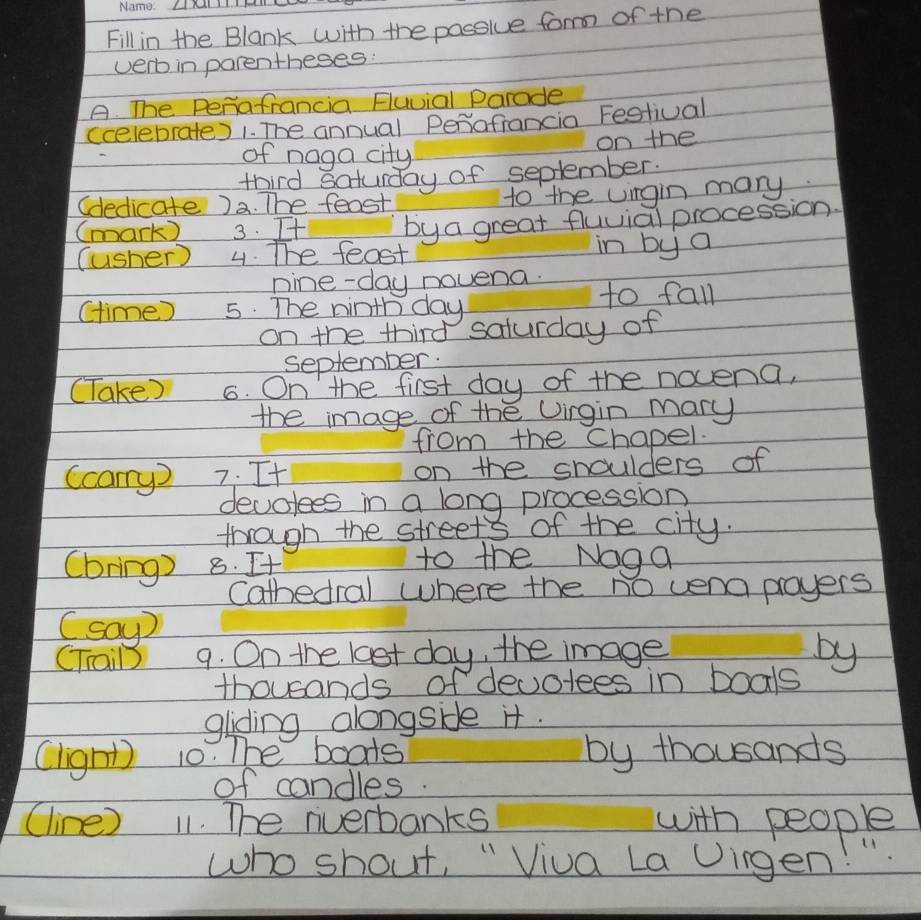 Name:
Fill in the Blank with the passive form of the
verb in parentheses:
A. The Peñafrancia Fluvial Parade
(celebrate) 1. The annual Peñafrancia Festival
of naga city on the
third saturday of september.
(dedicate) 2. The feast to the virgin mary.
(mark) 3. It by a great fluvial procession.
(usher) 4. The feast in by a
nine-day novena.
(time) 5. The ninth day to fall
on the third saturday of
september.
(Take) 6. On the first day of the novena,
the image of the virgin mary
from the chapel.
(carry) 7. It on the shoulders of
devotees in a long procession
through the streets of the city.
(bring) 8. It to the Naga
Cathedral where the no vena prayers
(say)
(Trail) 9. On the last day, the image by
thousands of devotees in boats
gliding alongside it.
(light) 10. The boats by thousands
of candles.
(line) 11. The riverbanks with people
who shout, "Viva La Virgen!".